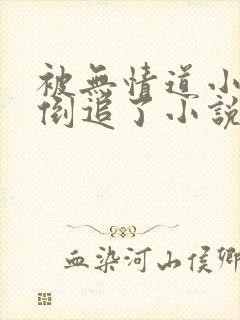 被無情道小
倒追了小説
血染河山侯卿